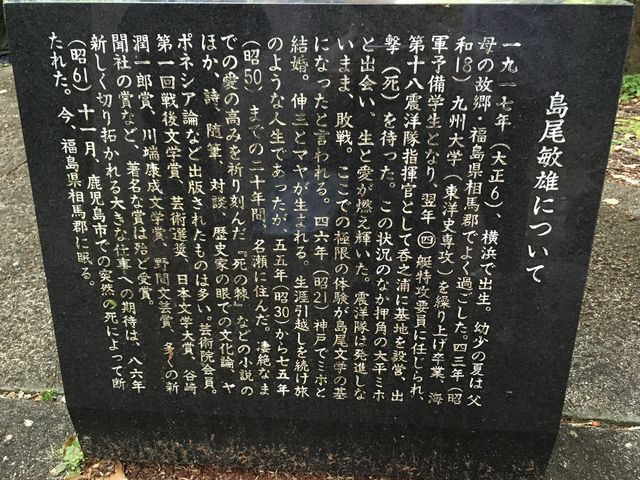 島尾敏雄について
一九一七年（大正6）、横浜で出生。幼少の夏は父
母の故郷・福島県相馬郡でよく過ごした。四三年（昭
和18）九州大学（東洋史専攻）を繰り上げ卒業、海
軍予備学生となり、翌年㊃艇特攻要員に任じられ、
第十八震洋隊指揮官として呑之浦に基地を設営、出
撃（死）を待った。この状況のなか押角の大平ミホ
と出会い、生と愛が燃え輝いた。震洋隊は発進しな
いまま、敗戦。ここでの極限の体験が島尾文学の基
になったと言われる。四六年（昭21）神戸でミホと
結婚。伸三とマヤが生まれる。生涯引越しを続け旅
のような人生であったが、五五年（昭30）から七五年
（昭50）までの二十年間、名瀬に住んだ。凄絶なま
での愛の高みを祈り刻んだ『死の棘』などの小説の
ほか、詩、随筆、対談、歴史家の眼での文化論、ヤ
ポネシア論など出版されたものは多い。芸術院会員。
第一回戦後文学賞、芸術選奨、日本文学大賞、谷崎
潤一郎賞、川端康成文学賞、野間文芸賞、多くの新
聞社の賞など、著名な賞は殆ど受賞。
新しく切り拓かれる大きな仕事への期待は、八六年
（昭61）十一月、鹿児島市での突然の死によって断
たれた。今、福島県相馬郡に眠る。